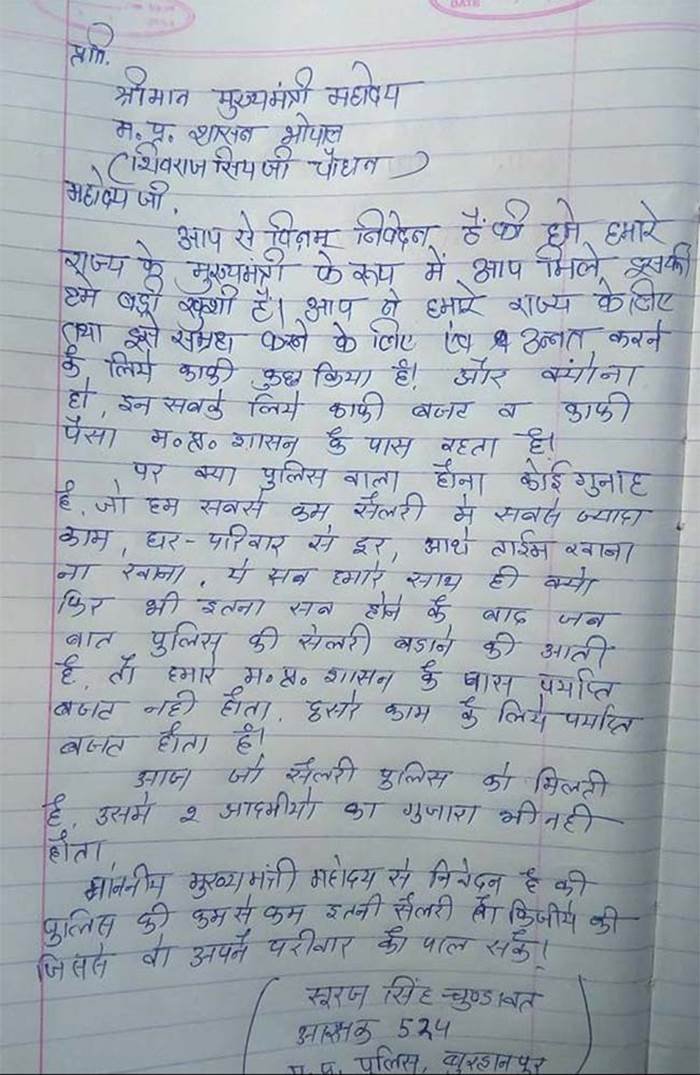 DATE
प्रति.
श्रीमान मुख्यमंत्री महोदय
म. प्र. शासन भोपाल
(शिवराज सिंघ जी चौहान)
महोदय जी,
आप से विनम्र निवेदन हैं की हमे हमारे
राज्य के मुख्यमंत्री के रूप में आप मिले इसकी
हमे बड़ी खुशी है। आप ने हमारे राज्य के लिए
तथा इसे करने के लिए एंव उन्नत करने
के लिये काफी कुछ किया है। और क्यों ना
हो, इन सबके लिये काफी बजट व काफी
पैसा म॰प्र॰ शासन के पास रहता है।
पर क्या पुलिस वाला होना कोई गुनाह
है, जो हम सबसे कम सैलरी मे सबसे ज्यादा
काम, घर-परिवार से दूर, आधे टाईम खाना
ना खाना, ये सब हमारे साथ ही क्यो
फिर भी इतना सब होने के बाद जब
बात पुलिस की सेलरी बडाने की आती
है, तो हमारे म॰प्र॰ शासन के पास पर्याप्त
बजट नही होता, दुसरे काम के लिये पर्याप्त
बजट होता है।
आज जो सैलरी पुलिस को मिलती
है, उसमे २ आदमीयो का गुजारा भी नही
होता
माननीय मुख्यमंत्री महोदय से निवेदन है की
पुलिस की कम से कम इतनी सैलरी तो किजीये की
जिससे वो अपने परीवार को पाल सके।
(सूरज सिंह चुण्डावत
आरक्षक 524
म. प्र. पुलिस, बुरहानपुर)